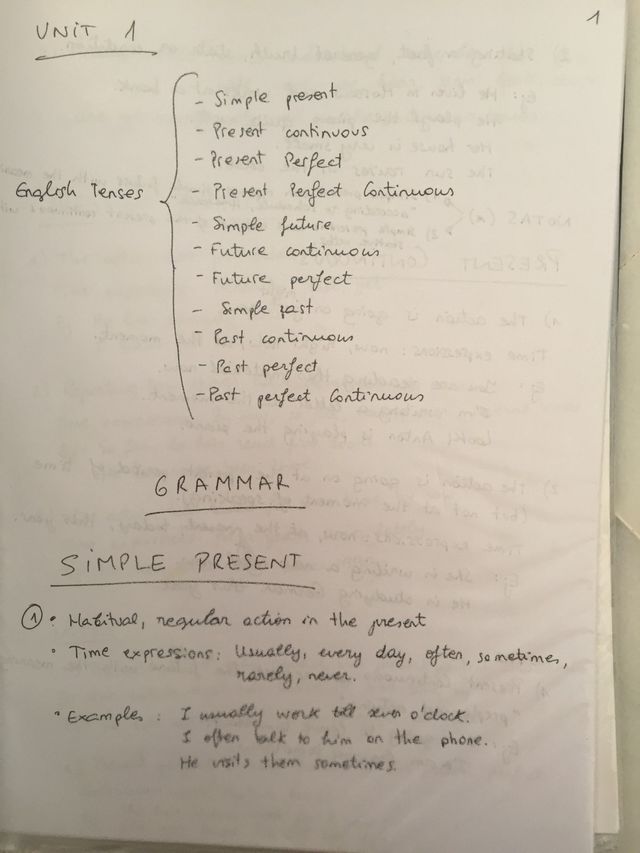 1
UNIT 1
English Tenses
- Simple present
- Present continuous
- Present Perfect
- Present Perfect Continuous
- Simple future
- Future continuous
- Future perfect
- Simple past
- Past continuous
- Past perfect
- Past perfect Continuous
GRAMMAR
SIMPLE PRESENT
1 • Habitual, regular action in the present
• Time expressions: Usually, every day, often, sometimes,
rarely, never.
• Examples: I usually work till seven o'clock.
I often talk to him on the phone.
He visits them sometimes.